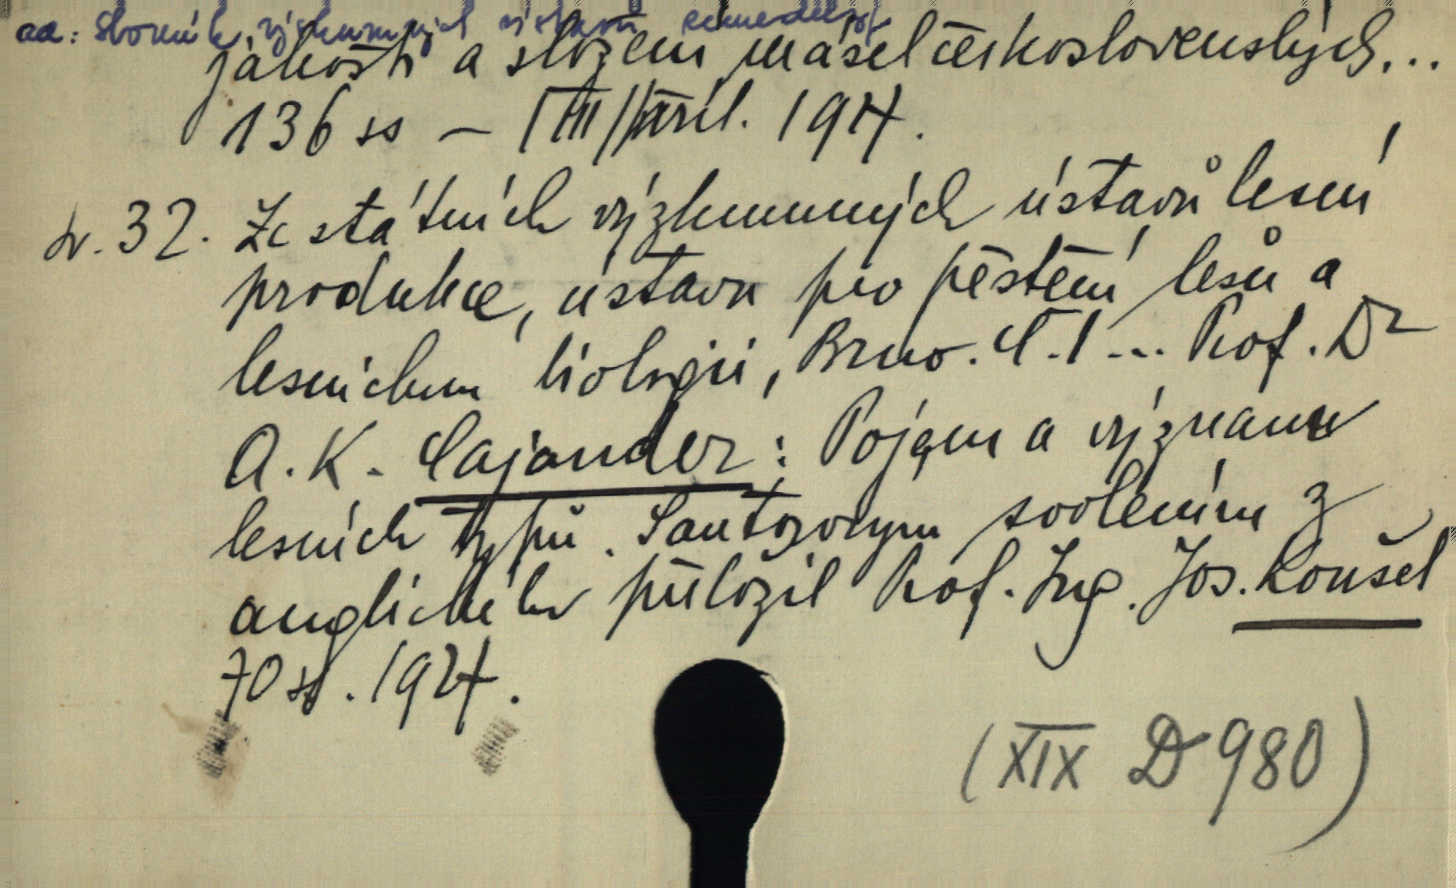 ad: Sborník výzkumných ústavů zemědělských
jakosti a složení másel československých...
136 ss – [III] příl. 1927.
sv. 32. Ze státních výzkumných ústavů lesní
produkce, ústavu pro pěstění lesů a
lesnickou biologii, Brno. Č. 1 ... Prof. Dr
A. K. Cajander: Pojem a význam
lesních typů. S autorovým svolením z
anglického přeložil Prof. Ing. Jos. Konšel
70 ss. 1927.
(XIX D 980)